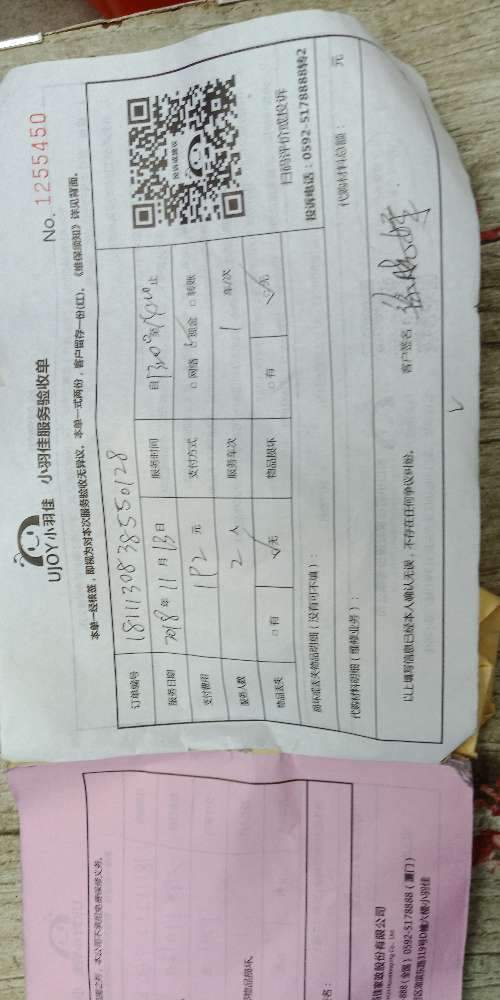 UJOY小羽佳 小羽佳服务验收单
No. 1255450
本单一经核签，即视为对本次服务验收无异议。本单一式两份，客户留存一份(红)。《维保须知》详见背面。
订单编号 1811130838550128
服务日期 2018年11月13日 服务时间 自 止
支付费用 元 支付方式 □网络 □现金 □转账
服务人数 2人 服务车次 1 车/次
物品丢失 □有 □无 物品损坏 □有 □无
投诉或建议
扫码评价或投诉
投诉电话：0592-5178888转2
损坏或丢失物品明细（没有可不填）：
代购材料明细（维修业务）： 代购材料总额： 元
以上填写信息已经本人确认无误，不存在任何争议纠纷。 客户签名：
本公司不承担免费保修义务。
物品损坏。
名：
家政股份有限公司
888(全国) 0592-5178888（厦门）
区湖滨东路319号D幢六楼小羽佳